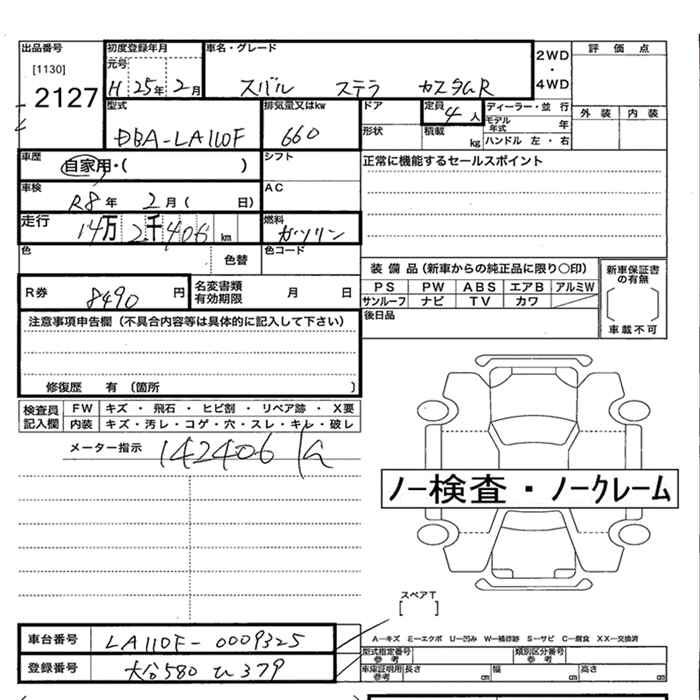 出品番号 初度登録年月 車名・グレード 2WD ・ 4WD 評価点
[1130] 元号
2127 H 25年 2月 スバル ステラ カスタムR
外装 内装
型式 排気量又はkw ドア 定員 4人 ディーラー・並行
DBA-LA110F 660 形状 積載 kg モデル年式 年
ハンドル 左・右
車歴 自家用・( ) シフト 正常に機能するセールスポイント
車検 R8年 2月( 日) AC
走行 14万2千406km 燃料 ガソリン
色 色替 色コード
装備品(新車からの純正品に限り○印) 新車保証書の有無
PS PW ABS エアB アルミW
サンルーフ ナビ TV カワ
車載不可
R券 8490円 名変書類有効期限 月 日
後日品
注意事項申告欄(不具合内容等は具体的に記入して下さい)
修復歴 有(箇所 )
検査員記入欄 FW キズ・飛石・ヒビ割・リペア跡・X要
内装 キズ・汚レ・コゲ・穴・スレ・キレ・破レ
メーター指示 142406
ノー検査・ノークレーム
スペアT
[ ]
A—キズ E—エクボ U—凹み W—補修跡 S—サビ C—腐食 XX—交換済
車台番号 LA110F-0009325 型式指定番号参考 類別区分番号参考
登録番号 580 379 車庫証明用参考 長さ cm 幅 cm 高さ cm